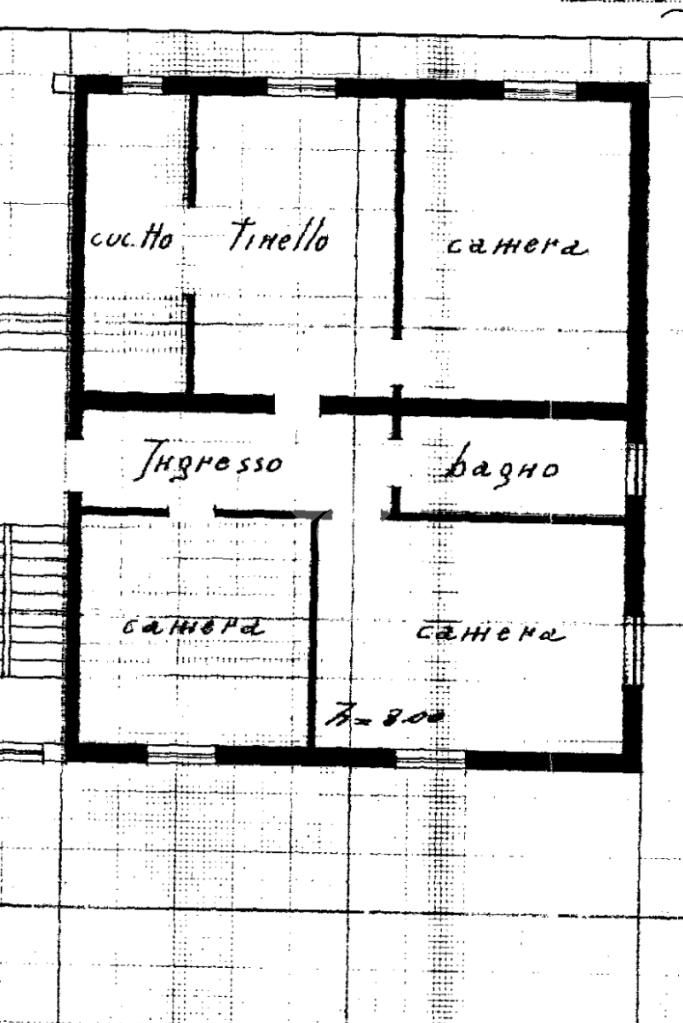 cuc.tto tinello camera
Ingresso bagno
camera camera
h = 3.00